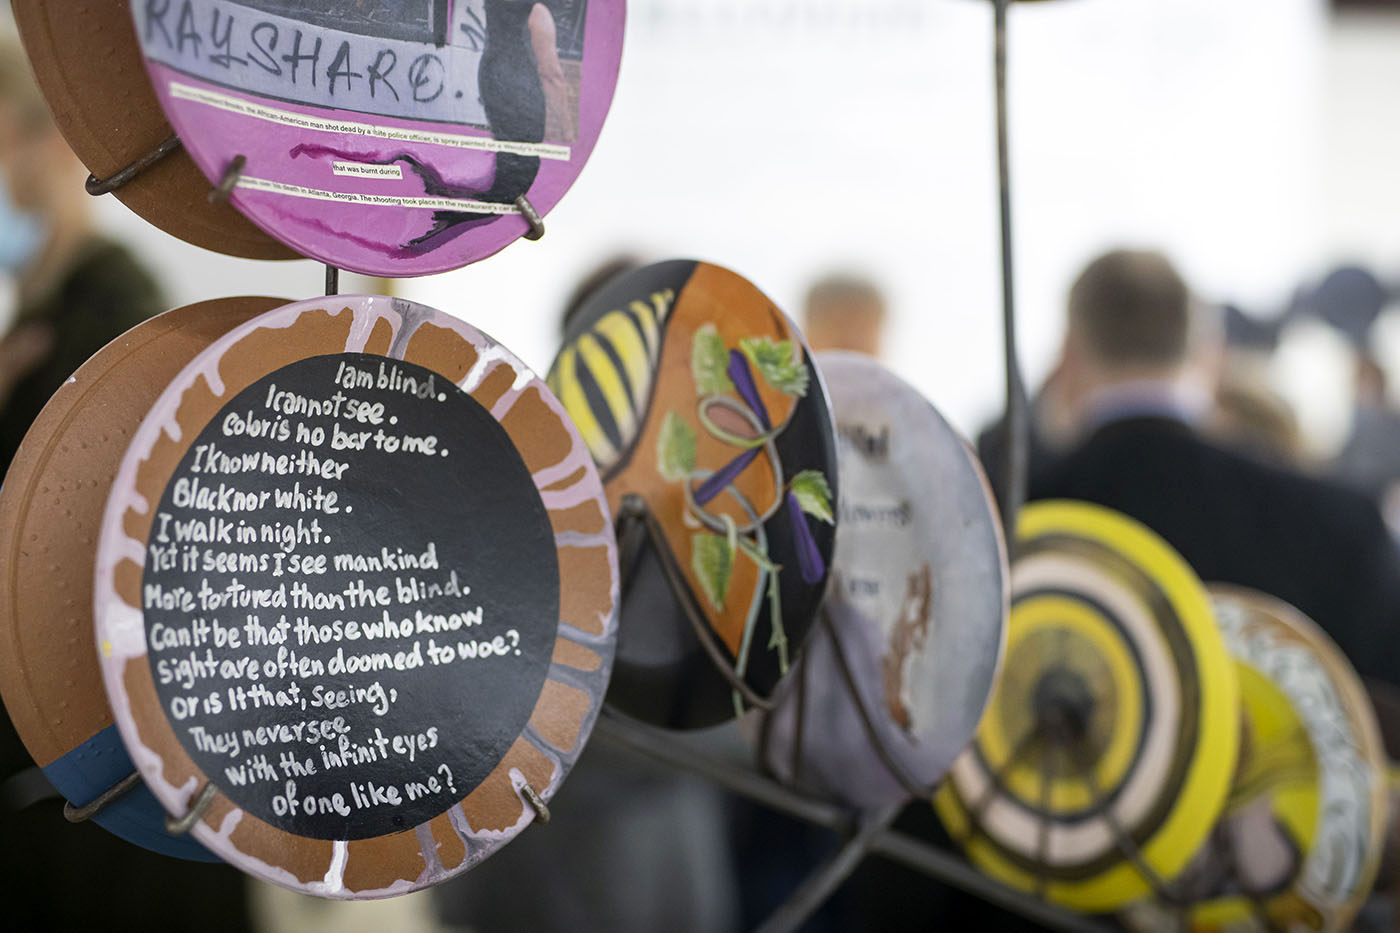 RAYSHARD.
Rayshard Brooks, the African-American man shot dead by a white police officer, is spray painted on a Wendy's restaurant
that was burnt during
over his death in Atlanta, Georgia. The shooting took place in the restaurant's car
I am blind.
I cannot see.
Color is no bar to me.
I know neither
Black nor white.
I walk in night.
Yet it seems I see mankind
More tortured than the blind.
Can It be that those who know
sight are often doomed to woe?
or is It that, seeing,
They never see
with the infinit eyes
of one like me?